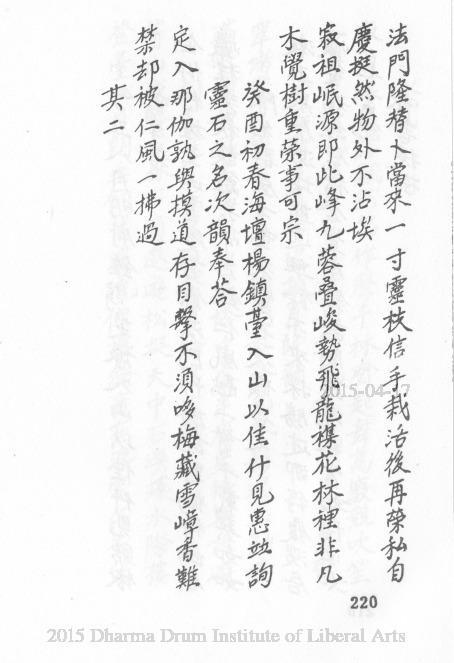 法門隆替卜當來一寸靈枝信手栽活後再榮私自
慶挺然物外不沾埃
寂祖岷源即此峰九蓉疊峻勢飛龍襍花林裡非凡
木覺樹重榮事可宗
癸酉初春海壇楊鎮臺入山以佳什見惠並詢
靈石之名次韻奉答
定入那伽孰與摸道存目擊不須哆梅藏雪嶂香難
禁却被仁風一拂過
其二
220
2015-04-17
2015 Dharma Drum Institute of Liberal Arts